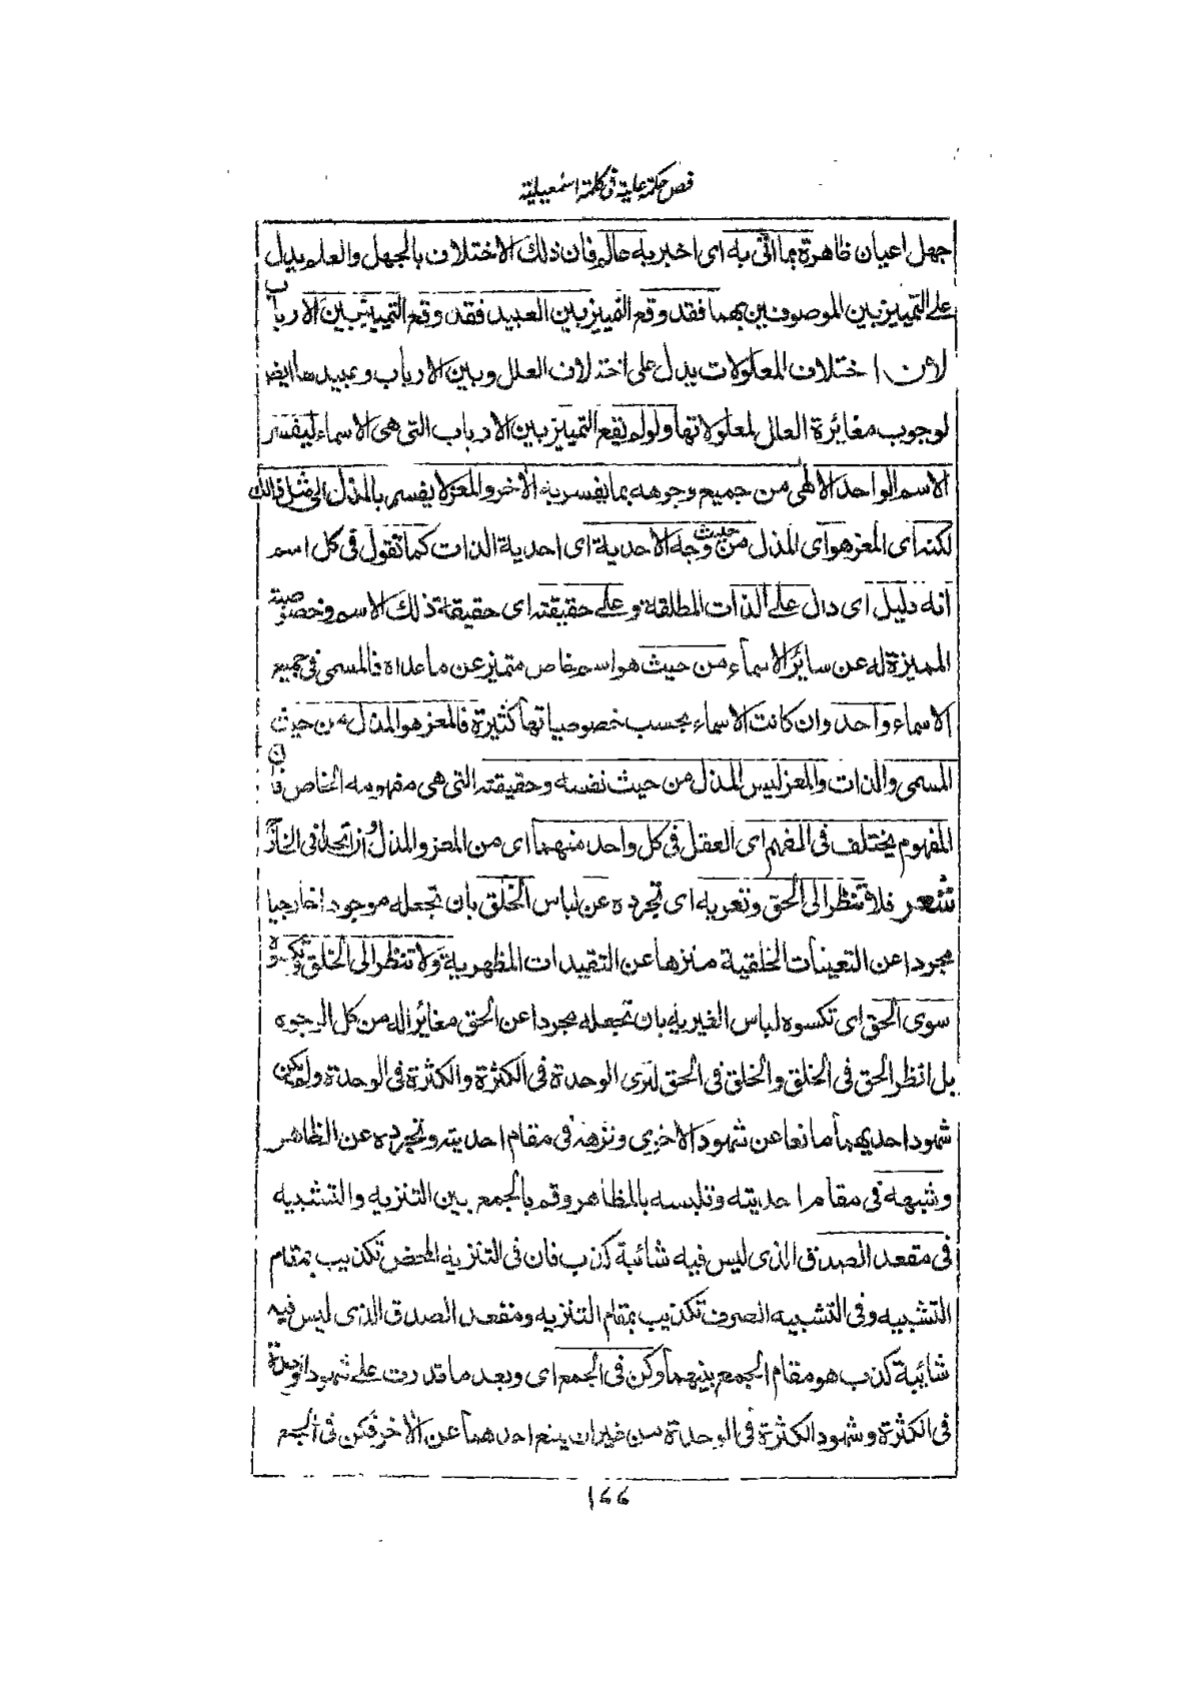 فص حكمة علية فى كلمة اسمعيلية
جهل اعيان ظاهرة بما اتى به اى اخبر به حاله فان ذلك الاختلاف بالجهل والعلم يدل
على التمييز بين الموصوفين بهما فقد وقع التمييز بين العبيد فقد وقع التمييز بين الارباب
لان اختلاف المعلولات يدل على اختلاف العلل وبين الارباب وعبيدها ايضا
لوجوب مغائرة العلل لمعلولاتها ولو لم يقع التمييز بين الارباب التى هى الاسماء ليفسر
الاسم الواحد الالهى من جميع وجوهه بما يفسر به الاخر والمعز لا يفسر بالمذل الى مثل ذلك
لكنه اى المعز هو اى المذل من حيث وجه الاحدية اى احدية الذات كما تقول فى كل اسم
انه دليل اى دال على الذات المطلقة وعلى حقيقته اى حقيقة ذلك الاسم وخصوصيته
المميزة له عن سائر الاسماء من حيث هو اسم خاص متميز عن ما عداه فالمسمى فى جميع
الاسماء واحد وان كانت الاسماء بحسب خصوصياتها كثيرة فالمعز هو المذل من حيث
المسمى والذات والمعز ليس المذل من حيث نفسه وحقيقته التى هى مفهومه الخاص فان
المفهوم يختلف فى الفهم اى العقل فى كل واحد منهما اى من المعز والمذل وان اتحدا فى الخارج
شعر فلا تنظر الى الحق وتعريه اى تجرده عن لباس الخلق بان تجعله موجودا خارجيا
مجردا عن التعينات الخلقية منزها عن التقيدات المظهرية ولا تنظر الى الخلق وتكسوه
سوى الحق اى تكسوه لباس الغيرية بان تجعله مجردا عن الحق مغائرا له من كل الوجوه
بل انظر الحق فى الخلق والخلق فى الحق لترى الوحدة فى الكثرة والكثرة فى الوحدة ولم يكن
شهود احديهما مانعا عن شهود الاخرى ونزهه فى مقام احديته وتجرده عن الظاهر
وشبهه فى مقام احديته وتلبسه بالمظاهر وقم بالجمع بين التنزيه والتشبيه
فى مقعد الصدق الذى ليس فيه شائبة كذب فان فى التنزيه المحض تكذيب بمقام
التشبيه وفى التشبيه الصرف تكذيب بمقام التنزيه ومقعد الصدق الذى ليس فيه
شائبة كذب هو مقام الجمع بينهما وكن فى الجمع اى وبعد ما قدرت على شهود الوحدة
فى الكثرة وشهود الكثرة فى الوحدة من غير ان يمنع احدهما عن الاخر فكن فى الجمع
١٦٦